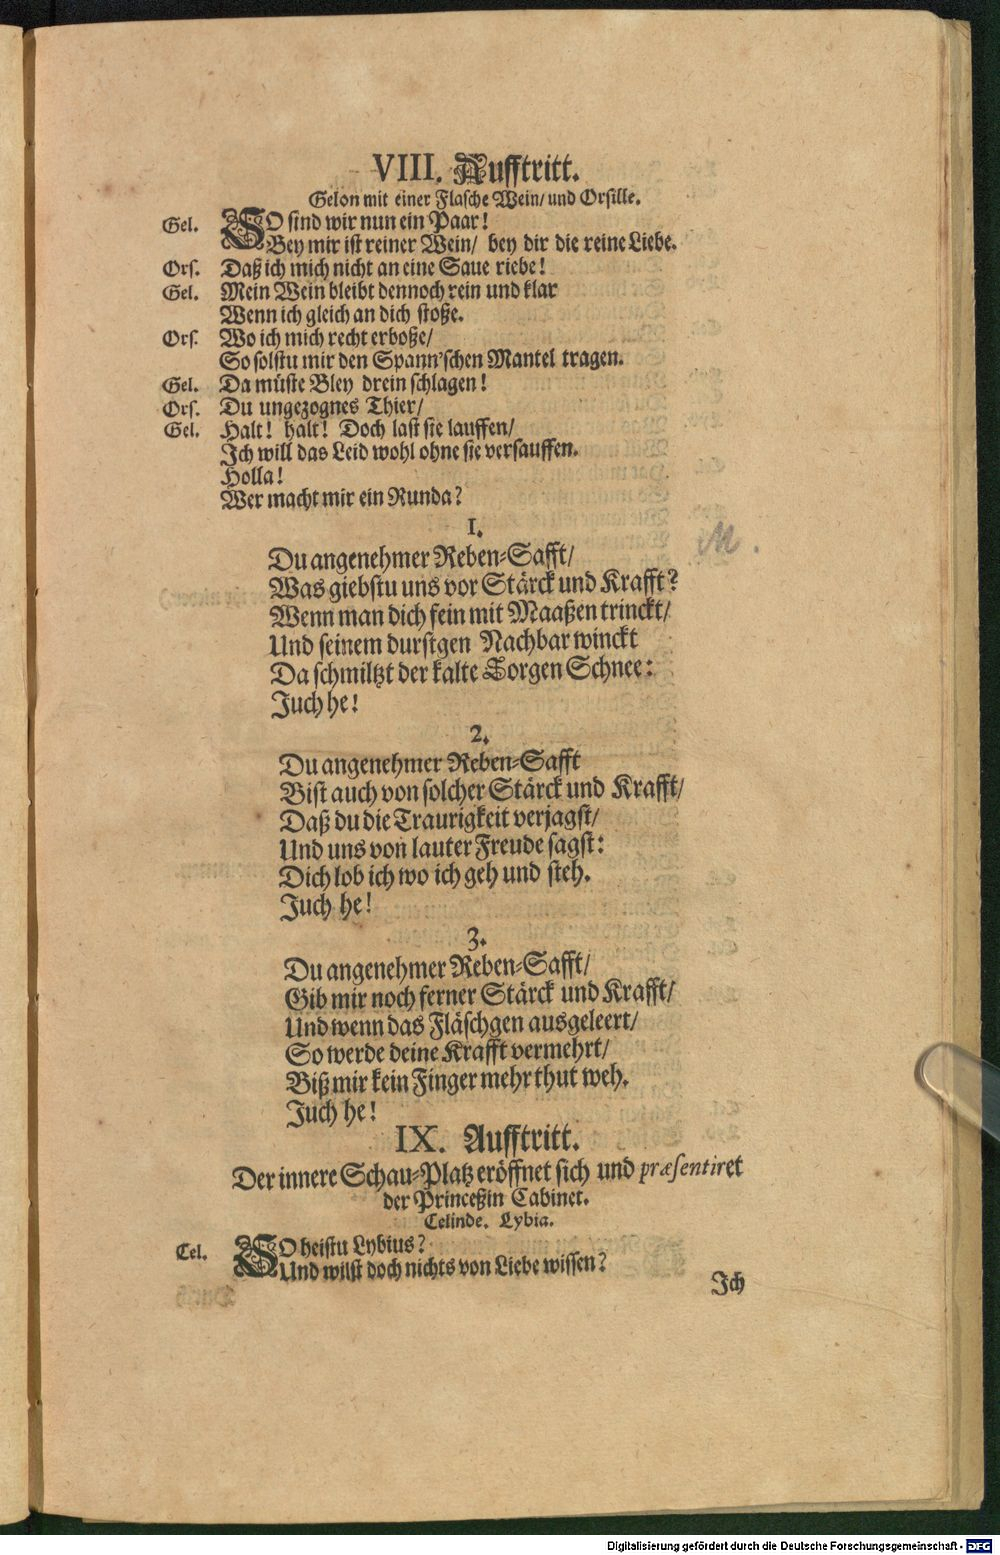 VIII. Aufftritt.
Gelon mit einer Flasche Wein/ und Orsille.
Gel. SO sind wir nun ein Paar!
Bey mir ist reiner Wein/ bey dir die reine Liebe.
Ors. Daß ich mich nicht an eine Saue riebe!
Gel. Mein Wein bleibt dennoch rein und klar
Wenn ich gleich an dich stoße.
Ors. Wo ich mich recht erboße/
So solstu mir den Spann'schen Mantel tragen.
Gel. Da müste Bley drein schlagen!
Ors. Du ungezognes Thier/
Gel. Halt! halt! Doch last sie lauffen/
Ich will das Leid wohl ohne sie versauffen.
Holla!
Wer macht mir ein Runda?
1.
Du angenehmer Reben-Safft/
Was giebstu uns vor Stärck und Krafft?
Wenn man dich fein mit Maaßen trinckt/
Und seinem durstgen Nachbar winckt
Da schmiltzt der kalte Sorgen Schnee:
Juch he!
M.
2.
Du angenehmer Reben-Safft
Bist auch von solcher Stärck und Krafft/
Daß du die Traurigkeit verjagst/
Und uns von lauter Freude sagst:
Dich lob ich wo ich geh und steh.
Juch he!
3.
Du angenehmer Reben-Safft/
Gib mir noch ferner Stärck und Krafft/
Und wenn das Fläschgen ausgeleert/
So werde deine Krafft vermehrt/
Biß mir kein Finger mehr thut weh.
Juch he!
IX. Aufftritt.
Der innere Schau-Platz eröffnet sich und præsentiret
der Princeßin Cabinet.
Celinde. Lybia.
Cel. SO heistu Lybius?
Und wilst doch nichts von Liebe wissen?
Ich
Digitalisierung gefördert durch die Deutsche Forschungsgemeinschaft - DFG